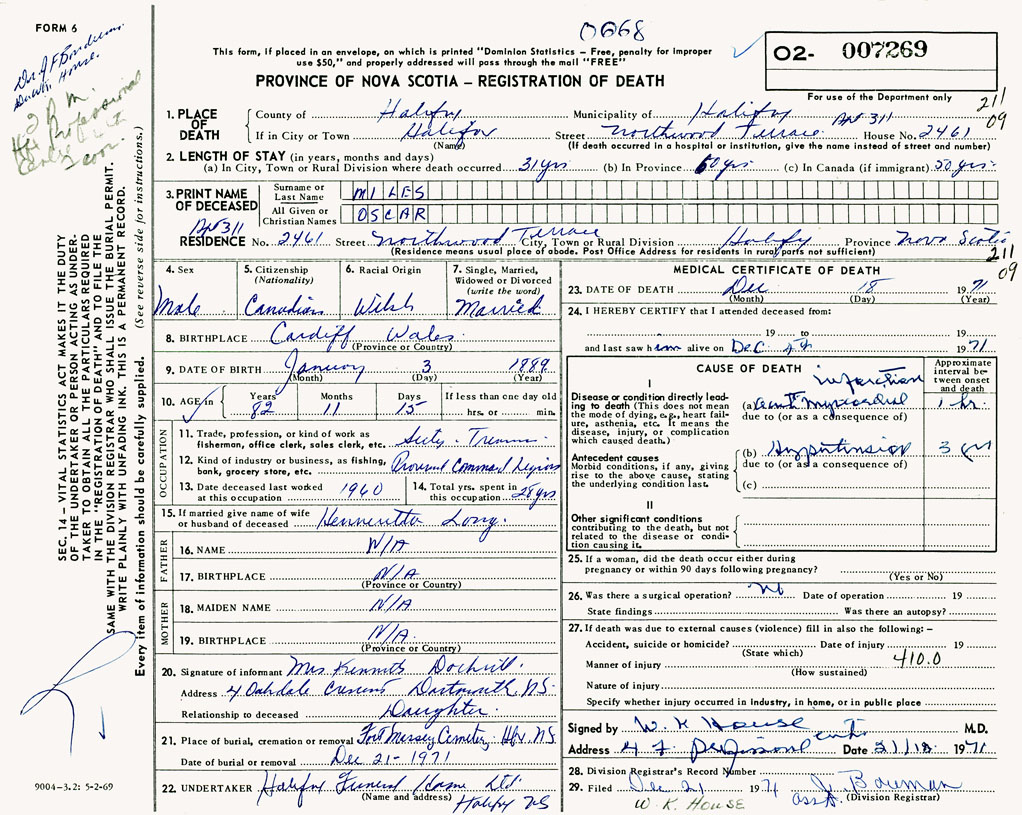 FORM 6
0668
This form, if placed in an envelope, on which is printed "Dominion Statistics - Free, penalty for improper
use $50," and properly addressed will pass through the mail "FREE"
PROVINCE OF NOVA SCOTIA - REGISTRATION OF DEATH
02- 007269
For use of the Department only
211
09
1. PLACE OF DEATH
County of Halifax Municipality of Halifax
If in City or Town Halifax Street Northwood Terrace Apt 311 House No. 2461
(Name) (If death occurred in a hospital or institution, give the name instead of street and number)
2. LENGTH OF STAY (in years, months and days)
(a) In City, Town or Rural Division where death occurred 31 yrs (b) In Province 60 yrs (c) In Canada (if immigrant) 50 yrs.
3. PRINT NAME OF DECEASED
Surname or Last Name MILES
All Given or Christian Names OSCAR
Apt 311
RESIDENCE No. 2461 Street Northwood Terrace City, Town or Rural Division Halifax Province Nova Scotia
(Residence means usual place of abode. Post Office Address for residents in rural parts not sufficient)
211
09
4. Sex
Male
5. Citizenship (Nationality)
Canadian
6. Racial Origin
Welsh
7. Single, Married, Widowed or Divorced (write the word)
Married
8. BIRTHPLACE Cardiff Wales
(Province or Country)
9. DATE OF BIRTH January 3 1889
(Month) (Day) (Year)
10. AGE in Years Months Days If less than one day old
82 11 15 hrs. or min.
OCCUPATION
11. Trade, profession, or kind of work as fisherman, sales clerk, etc. Secty. Treasurer
12. Kind of industry or business, as fishing, bank, grocery store, etc. Provincial Command Legion
13. Date deceased last worked at this occupation 1960
14. Total yrs. spent in this occupation 28 yrs
15. If married give name of wife or husband of deceased Hennerittha Long.
FATHER
16. NAME N/A
17. BIRTHPLACE N/A
(Province or Country)
MOTHER
18. MAIDEN NAME N/A
19. BIRTHPLACE N/A
(Province or Country)
20. Signature of informant Mrs Kenneth
Address 4 Oakdale Crescent Dartmouth, NS.
Relationship to deceased Daughter.
21. Place of burial, cremation or removal Fort Massey Cemetery. Hfx. NS
Date of burial or removal Dec 21 - 1971
22. UNDERTAKER Halifax Funeral Home Ltd
(Name and address) Halifax NS
MEDICAL CERTIFICATE OF DEATH
23. DATE OF DEATH Dec 18 1971
(Month) (Day) (Year)
24. I HEREBY CERTIFY that I attended deceased from:
19 to 19
and last saw him alive on Dec 1971
CAUSE OF DEATH
Approximate interval between onset and death
I
Disease or condition directly leading to death (This does not mean the mode of dying, e.g., heart failure, asthenia, etc. It means the disease, injury, or complication which caused death.)
(a) acute myocardial infarction 1 hr.
due to (or as a consequence of)
Antecedent causes
Morbid conditions, if any, giving rise to the above cause, stating the underlying condition last.
(b) Hypertension 3 yrs
due to (or as a consequence of)
(c)
II
Other significant conditions
contributing to the death, but not related to the disease or condition causing it.
25. If a woman, did the death occur either during pregnancy or within 90 days following pregnancy?
(Yes or No)
26. Was there a surgical operation? no Date of operation 19
State findings Was there an autopsy?
27. If death was due to external causes (violence) fill in also the following: -
Accident, suicide or homicide? Date of injury 19
(State which)
Manner of injury 410.0
(How sustained)
Nature of injury
Specify whether injury occurred in industry, in home, or in public place
Signed by W. K House M.D.
Address Professional Centre Date 21/12 1971
28. Division Registrar's Record Number
29. Filed Dec 21 1971 J. Bowman
Asst. (Division Registrar)
W. K. HOUSE
SEC. 14 - VITAL STATISTICS ACT MAKES IT THE DUTY
OF THE UNDERTAKER OR PERSON ACTING AS UNDER-
TAKER TO OBTAIN ALL THE PARTICULARS REQUIRED
IN THE "REGISTRATION OF DEATH" AND TO FILE THE
SAME WITH THE DIVISION REGISTRAR WHO SHALL ISSUE THE BURIAL PERMIT.
WRITE PLAINLY WITH UNFADING INK. THIS IS A PERMANENT RECORD.
Every item of information should be carefully supplied. (See reverse side for instructions.)
9004-3.2: 5-2-69